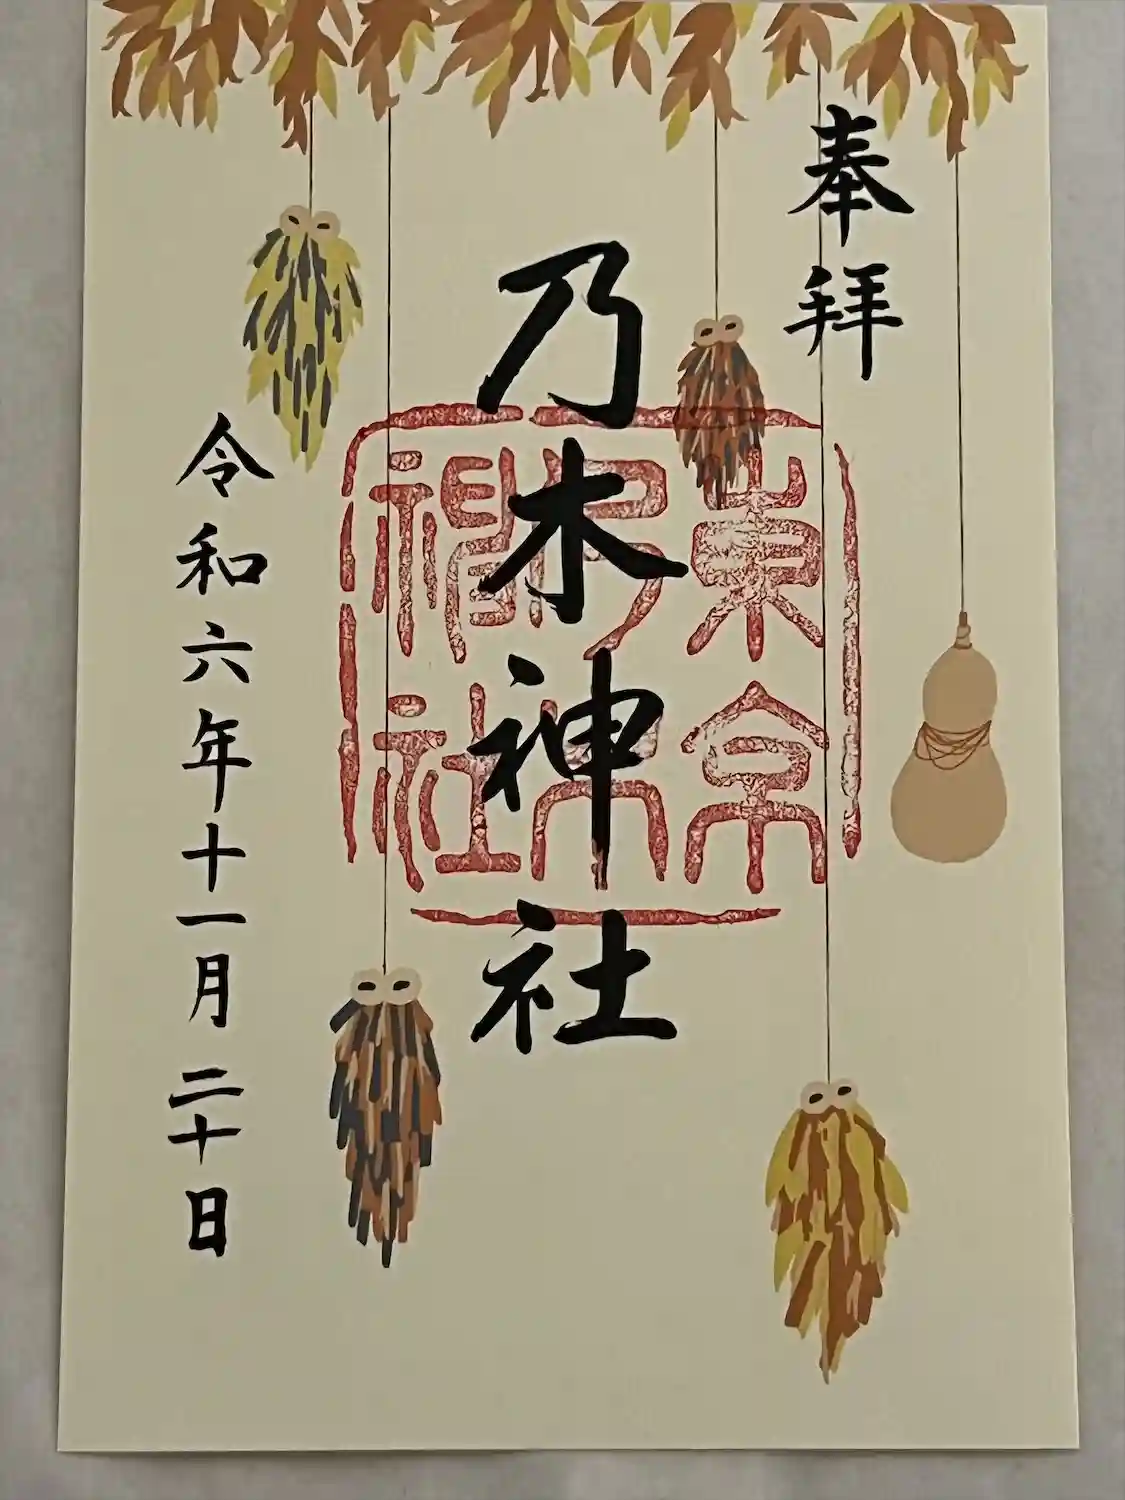 奉拝
乃木神社
東京
乃木
神社
令和六年十一月二十日